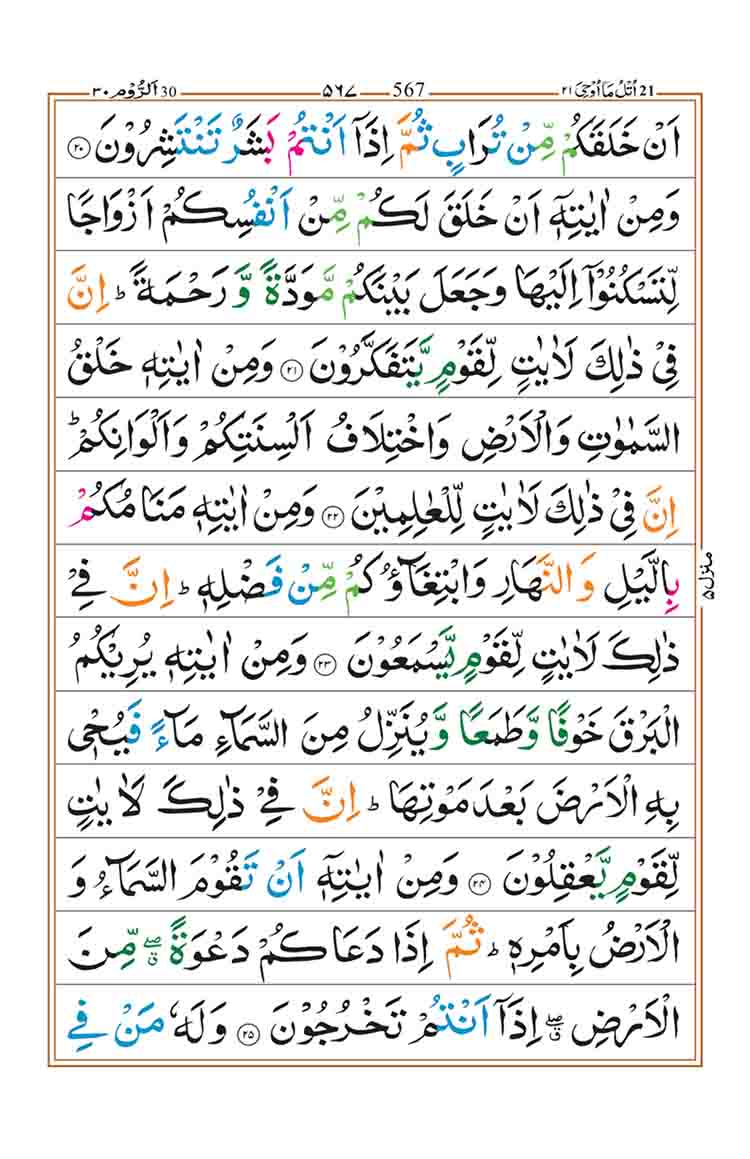 اُتْلُ مَاۤ اُوْحِیَ ۲۱ 21 567 ۵۶۷ اَلرُّوْم ۳۰ 30
اَنْ خَلَقَكُمْ مِّنْ تُرَابٍ ثُمَّ اِذَاۤ اَنْتُمْ بَشَرٌ تَنْتَشِرُوْنَ ۲۰
وَمِنْ اٰیٰتِهٖۤ اَنْ خَلَقَ لَكُمْ مِّنْ اَنْفُسِكُمْ اَزْوَاجًا
لِّتَسْكُنُوْۤا اِلَیْهَا وَجَعَلَ بَیْنَكُمْ مَّوَدَّةً وَّ رَحْمَةً ؕ اِنَّ
فِیْ ذٰلِكَ لَاٰیٰتٍ لِّقَوْمٍ یَّتَفَكَّرُوْنَ ۲۱ وَمِنْ اٰیٰتِهٖ خَلْقُ
السَّمٰوٰتِ وَالْاَرْضِ وَاخْتِلَافُ اَلْسِنَتِكُمْ وَاَلْوَانِكُمْ ؕ
اِنَّ فِیْ ذٰلِكَ لَاٰیٰتٍ لِّلْعٰلِمِیْنَ ۲۲ وَمِنْ اٰیٰتِهٖ مَنَامُكُمْ
بِالَّیْلِ وَالنَّهَارِ وَابْتِغَآؤُكُمْ مِّنْ فَضْلِهٖ ؕ اِنَّ فِیْ
ذٰلِكَ لَاٰیٰتٍ لِّقَوْمٍ یَّسْمَعُوْنَ ۲۳ وَمِنْ اٰیٰتِهٖ یُرِیْكُمُ
الْبَرْقَ خَوْفًا وَّطَمَعًا وَّیُنَزِّلُ مِنَ السَّمَآءِ مَآءً فَیُحْیٖ
بِهِ الْاَرْضَ بَعْدَ مَوْتِهَا ؕ اِنَّ فِیْ ذٰلِكَ لَاٰیٰتٍ
لِّقَوْمٍ یَّعْقِلُوْنَ ۲۴ وَمِنْ اٰیٰتِهٖۤ اَنْ تَقُوْمَ السَّمَآءُ وَ
الْاَرْضُ بِاَمْرِهٖ ؕ ثُمَّ اِذَا دَعَاكُمْ دَعْوَةً ۖق مِّنَ
الْاَرْضِ ۖق اِذَاۤ اَنْتُمْ تَخْرُجُوْنَ ۲۵ وَلَهٗ مَنْ فِی
منزل ۵